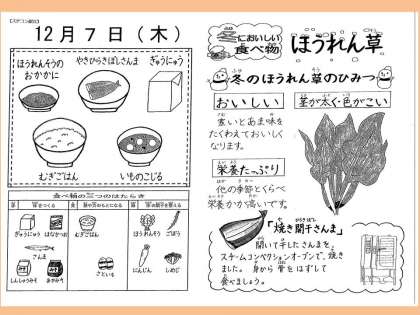 12月7日(木)
ほうれんそうの
おかかに
やきひらきぼしさんま
ぎゅうにゅう
むぎごはん
いものこじる
食べ物の三つのはたらき
ぎゅうにゅう
はなかつお
さんま
むぎごはん
さといも
ほうれんそう
ごぼう
にんじん
しめじ
冬においしい
食べ物
ほうれん草
冬のほうれん草のひみつ
おいしい
茎が太く・色がこい
寒いとあま味を
たくわえておいしく
なります。
栄養たっぷり
他の季節とくらべ
栄養かが高いです。
「焼き開干さんま」
開いて干したさんまを、
スチームコンベクションオーブンで、焼き
ました。身から骨をはずして
食べましょう。